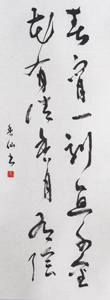 春宵一刻直千金
花有清香月有陰